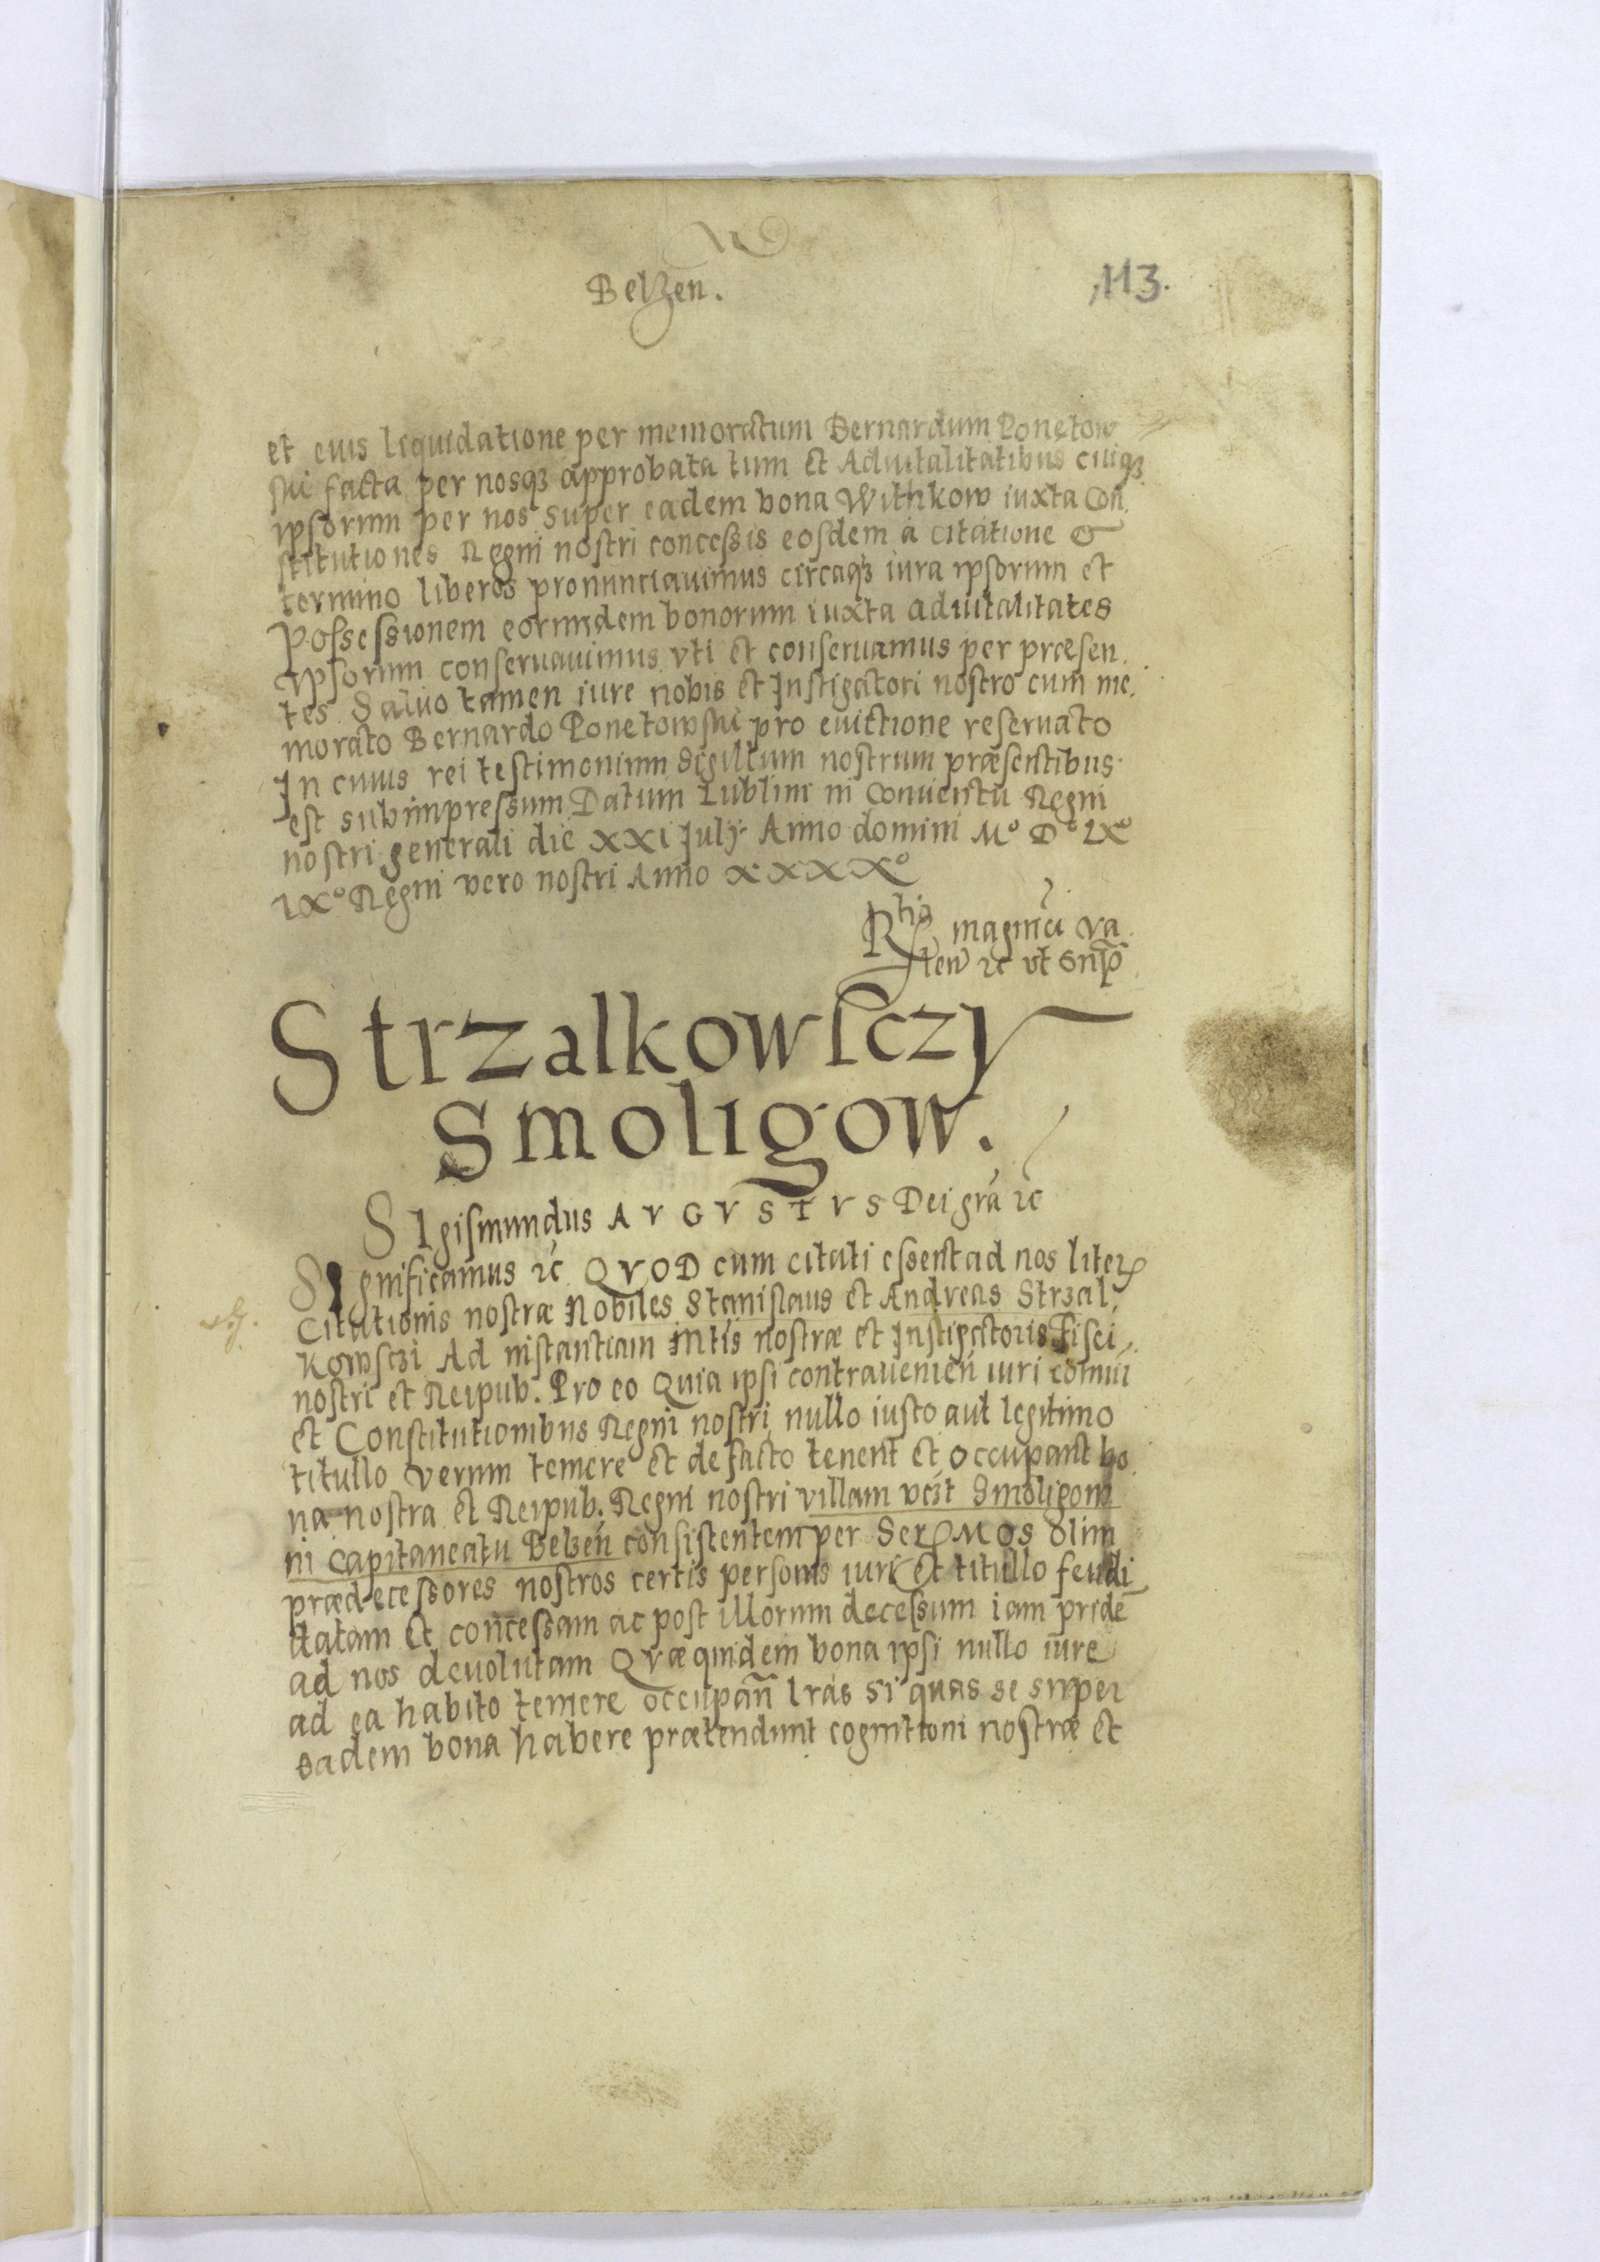 Belzen.
113.
et euis liquidatione per memoratum Bernardum Ponetow
ski facta per nosqꝫ approbata tum et Aduitalitatibus cuiqꝫ
ipsorum per nos super eadem bona Withkow iuxta Con.
stitutiones Regni nostri concessis eosdem à citatione &
termino liberos pronunciauimus circaqꝫ iura ipsorum et
Possessionem eorundem bonorum iuxta aduitalitates
ipsorum conseruauimus vti et conseruamus per præsen.
tes Saluo tamen iure nobis et Instigatori nostro cum me.
morato Bernardo Ponetowski pro euictione reseruato
In cuius rei testimonium Sigillum nostrum præsentibus
est subimpressum Datum Lublini in Conuentu Regni
nostri generali die XXI July Anno domini M° D° LX°
IX° Regni vero nostri Anno XXXX°
Rtio magnifici Va
len ꝛc vt Supra
Strzalkowsczy
Smoligow.
SIgismundus AVGVSTVS Dei grā ꝛc
SIgnificamus ꝛc QVOD cum citati essent ad nos literꝭ
Citationis nostræ Nobiles Stanislaus et Andreas Strzal,
kowsczi Ad instantiam Mtis nostræ et Instigatoris Fisci
nostri et Reipub. Pro eo Quia ipsi contrauenien̄ iuri comūi
et Constitutionibus Regni nostri nullo iusto aut legitimo
titullo verum temere et de facto tenent et occupant bo.
na nostra et Reipub. Regni nostri villam vczt Smoligow
in Capitaneatu Belzen̄ consistentem per SerꝭMOS olim
prædecessores nostros certis personis iure et titullo feudi
datam et concessam ac post illorum decessum iam pridē
ad nos deuolutam Quæquidem bona ipsi nullo iure
ad ea habito temere occupan̄ lrās si quas se super
eadem bona habere prætendunt cognitioni nostræ et